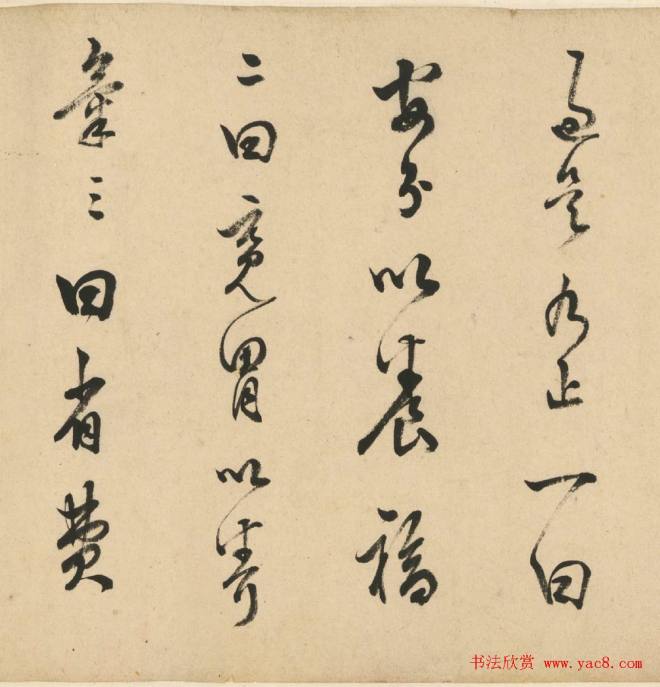 過是乃止一曰
安分以養福
二曰寬胃以養
氣三曰省費
书法欣赏 www.yac8.com